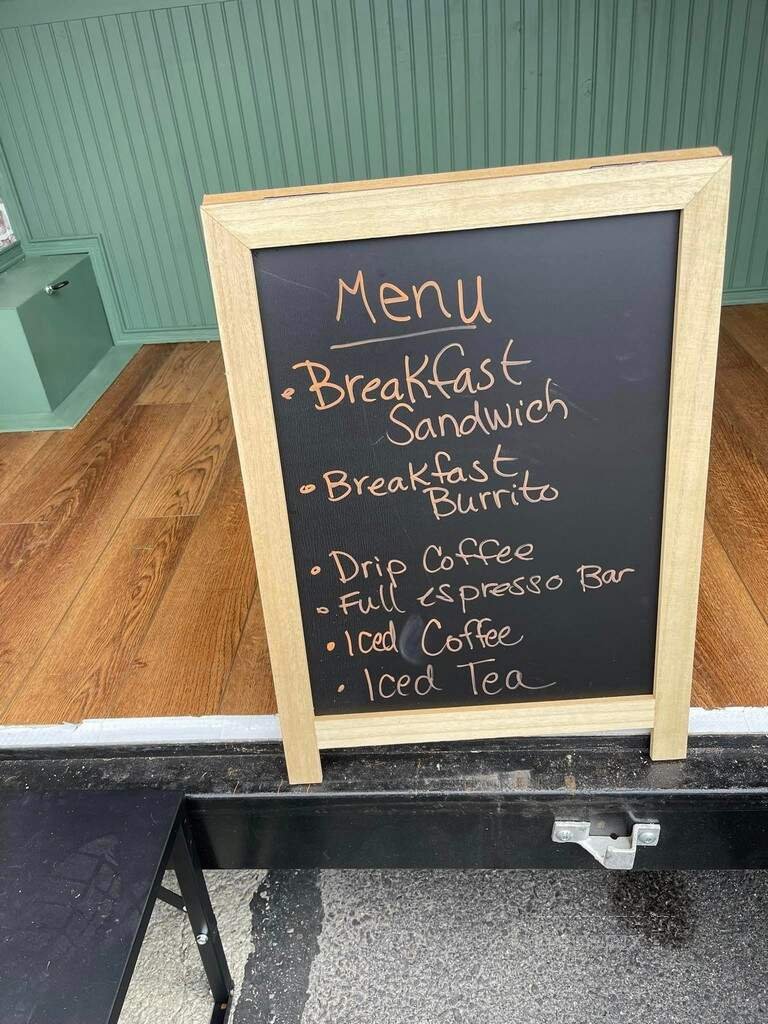 Menu
• Breakfast
Sandwich
• Breakfast
Burrito
• Drip Coffee
• Full espresso Bar
• Iced Coffee
• Iced Tea